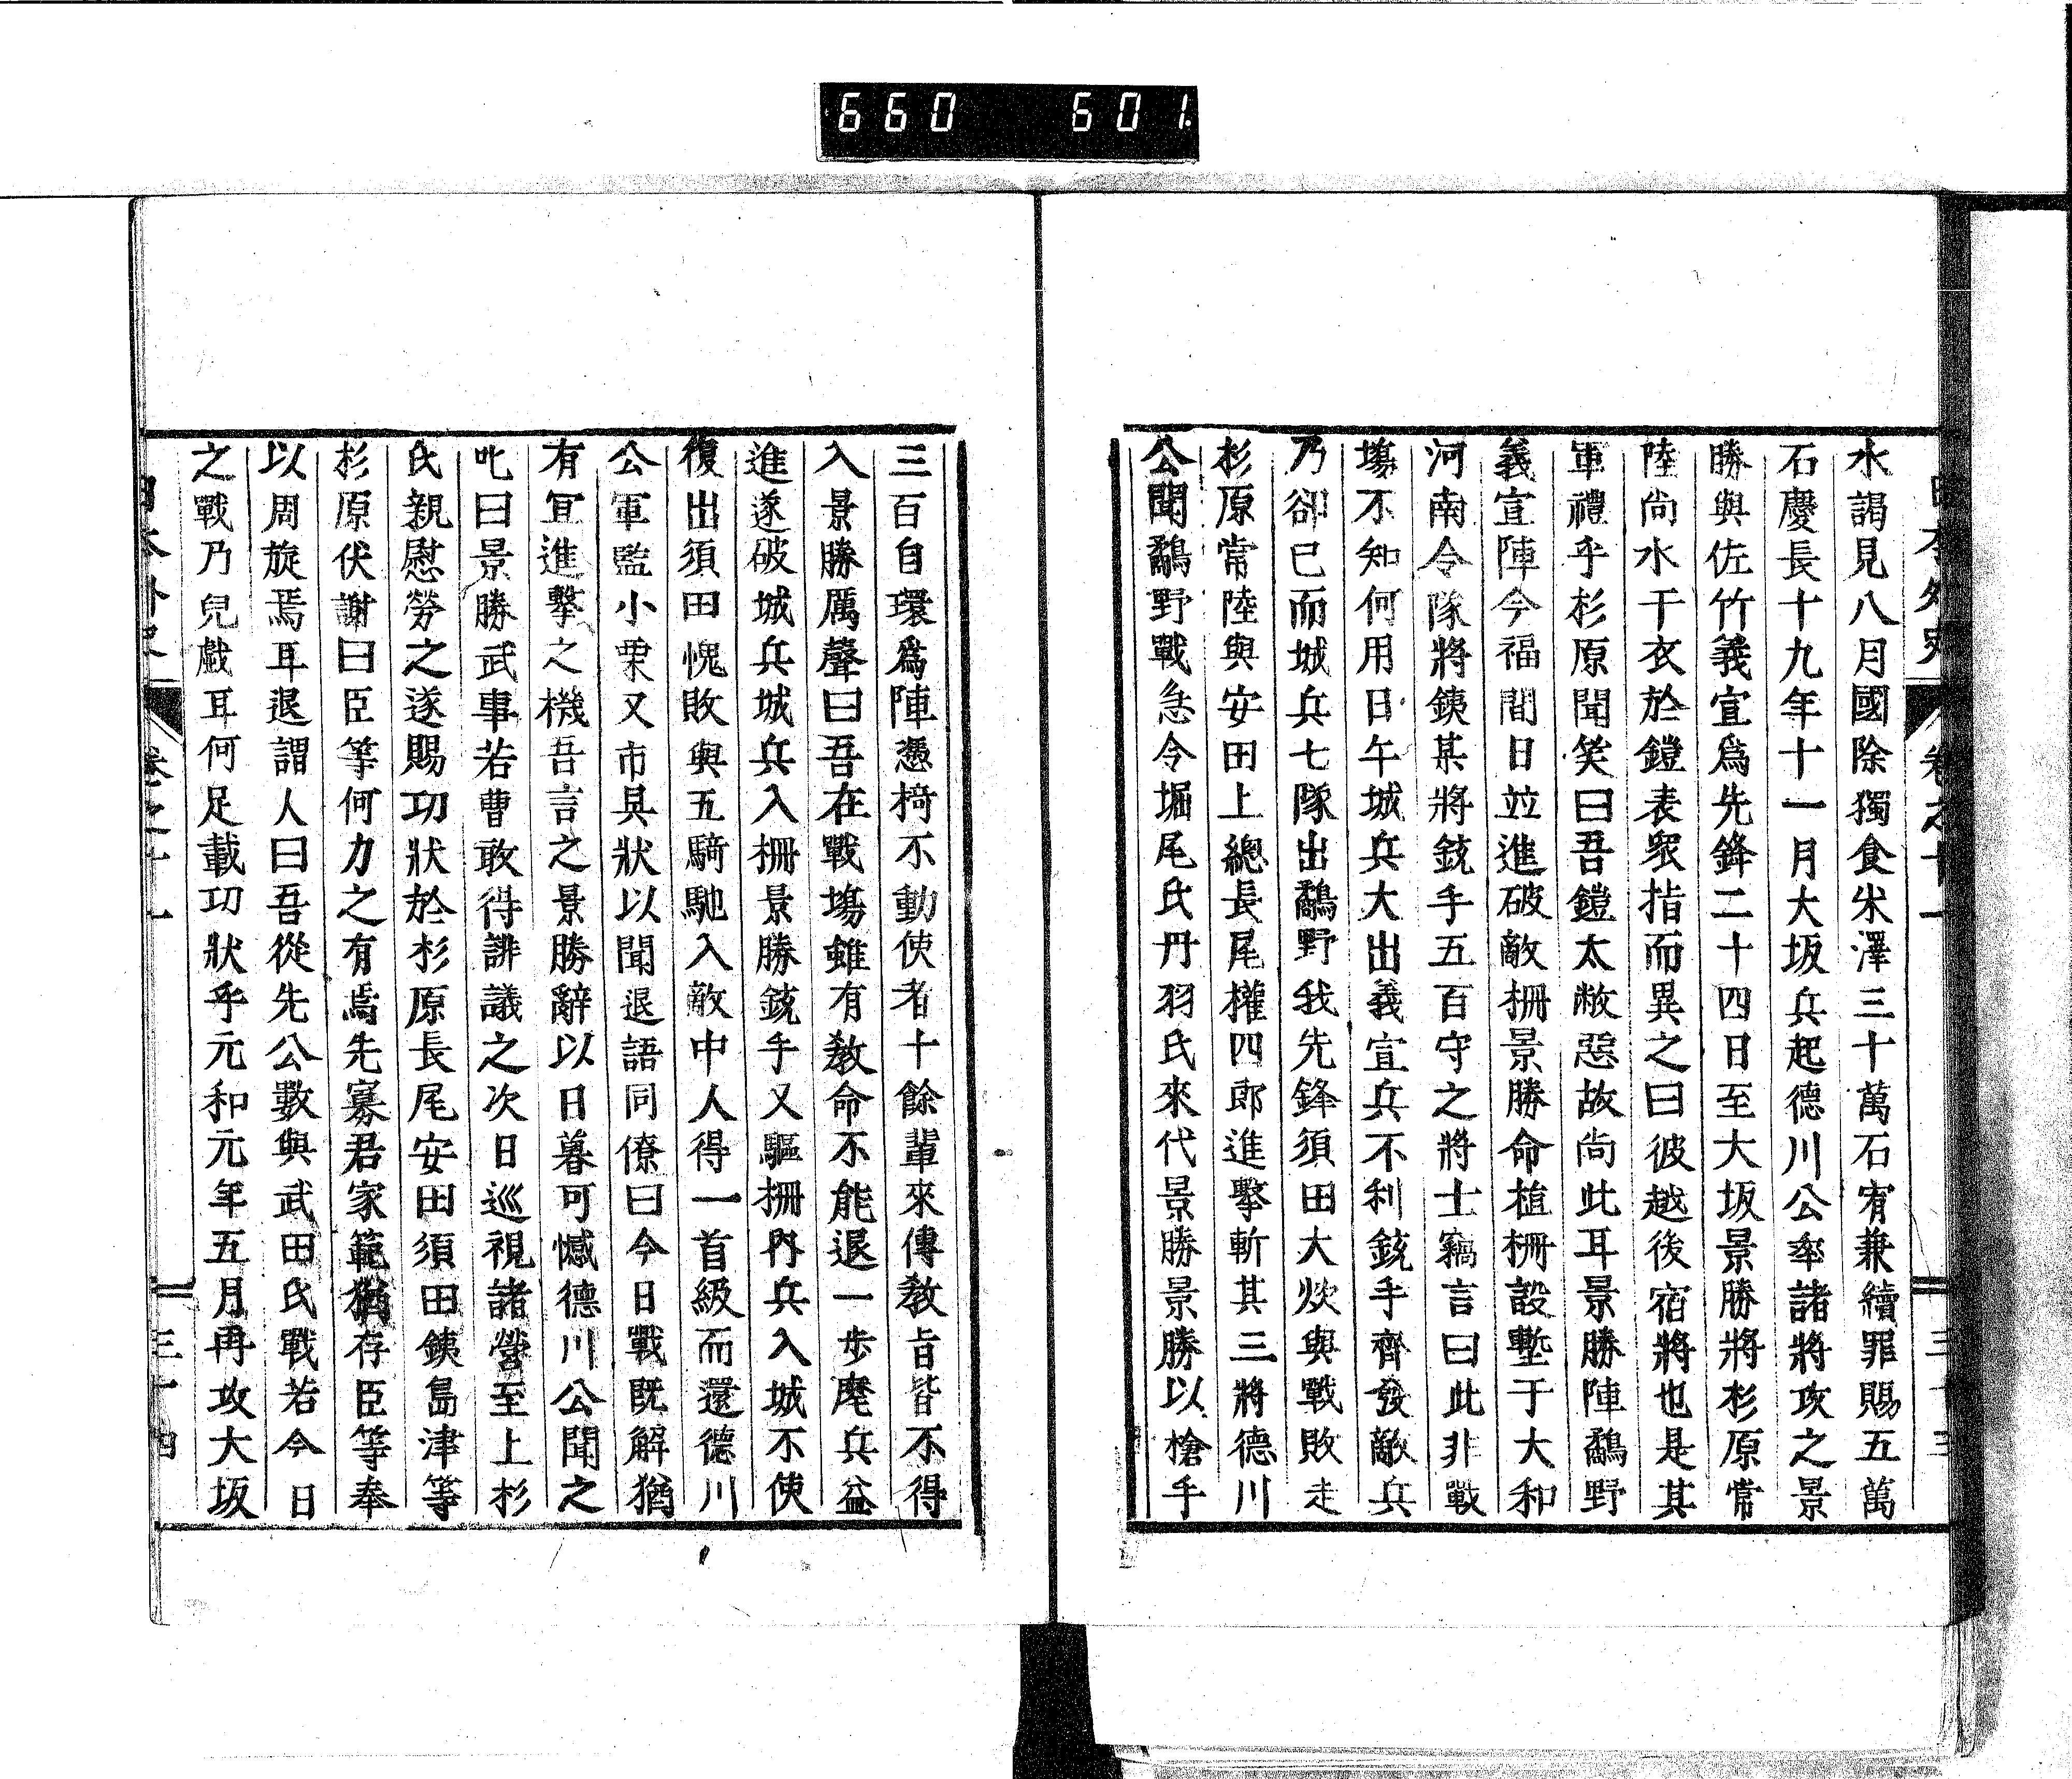 660 601
日本外史 卷之十一 三十三
水謁見八月國除獨食米澤三十萬石宥兼續罪賜五萬
石慶長十九年十一月大坂兵起德川公率諸將攻之景
勝與佐竹義宣爲先鋒二十四日至大坂景勝將杉原常
陸尚水干衣於鎧表衆指而異之曰彼越後宿將也是其
軍禮乎杉原聞笑曰吾鎧太敝惡故尚此耳景勝陣鷸野
義宣陣今福間日竝進破敵柵景勝命植柵設塹于大和
河南令隊將銕某將銃手五百守之將士竊言曰此非戰
塲不知何用日午城兵大出義宣兵不利銃手齊發敵兵
乃卻已而城兵七隊出鷸野我先鋒須田大炊與戰敗走
杉原常陸與安田上總長尾權四郎進擊斬其三將德川
公聞鷸野戰急令堀尾氏丹羽氏來代景勝景勝以槍手
三百自環爲陣憑椅不動使者十餘輩來傳教旨皆不得
入景勝厲聲曰吾在戰塲雖有教命不能退一步麾兵益
進遂破城兵城兵入柵景勝銃手又驅柵內兵入城不使
復出須田愧敗與五騎馳入敵中人得一首級而還德川
公軍監小栗又市具狀以聞退語同僚曰今日戰既解猶
有宜進擊之機吾言之景勝辭以日暮可憾德川公聞之
叱曰景勝武事若曹敢得誹議之次日巡視諸營至上杉
氏親慰勞之遂賜功狀於杉原長尾安田須田銕島津等
杉原伏謝曰臣等何力之有焉先寡君家範猶存臣等奉
以周旋焉耳退謂人曰吾從先公數與武田氏戰若今日
之戰乃兒戲耳何足載功狀乎元和元年五月再攻大坂
日本外史 卷之十一 三十四